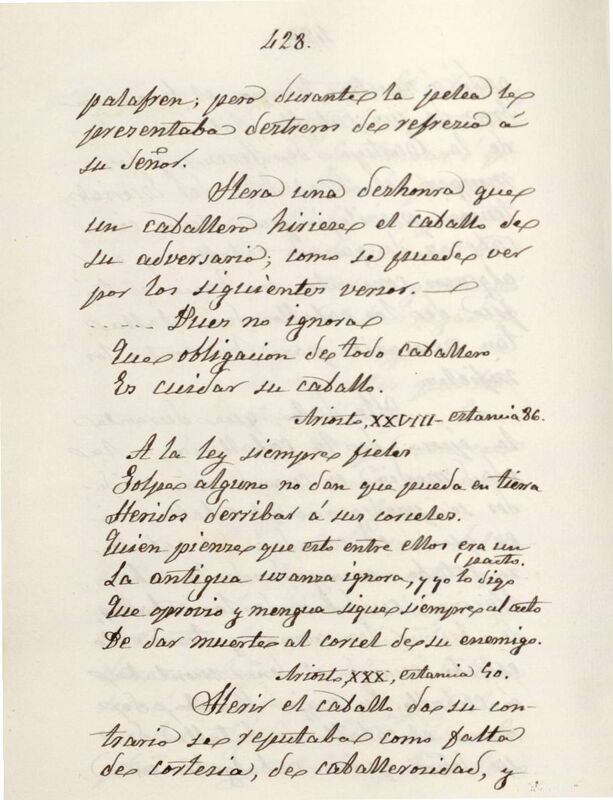 428.
palafren; pero durante la pelea le
prezentaba destreros de refrezco á
su Señor.
Hera una deshonra que
un caballero hiriese el caballo de
su adversario; como se puede ver
por los siguientes versos. —
..... Pues no ignora
Que obligacion de todo caballero
Es cuidar su caballo.
Ariosto, XXVIII - estancia 86.
A la ley siempre fieles
Golpe alguno no dan que pueda en tierra
Heridos derribar á sus corceles.
Quien piense que esto entre ellos era un
pacto.
La antigua usanza ignora, y yo lo digo
Que oprovio y mengua sigue siempre al acto
De dar muerte al corcel de su enemigo.
Ariosto, XXX, estancia 50.
Herir el caballo de su con-
trario se reputaba como falta
de cortesia, de caballerosidad, y